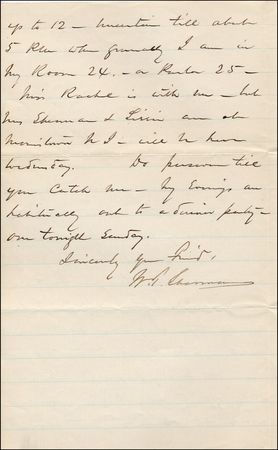 up to 12 - uncertain till about
5 PM when generally I am in
my Room 24. - or Parlor 25 -
Miss Rachel is with me - but
Mrs Sherman & Lizzie are at
N J - will be here
Wednesday. Do persevere till
you catch me - My Evenings are
habitually out to a dinner party -
one tonight Sunday.
Sincerely your friend,
W. T. Sherman